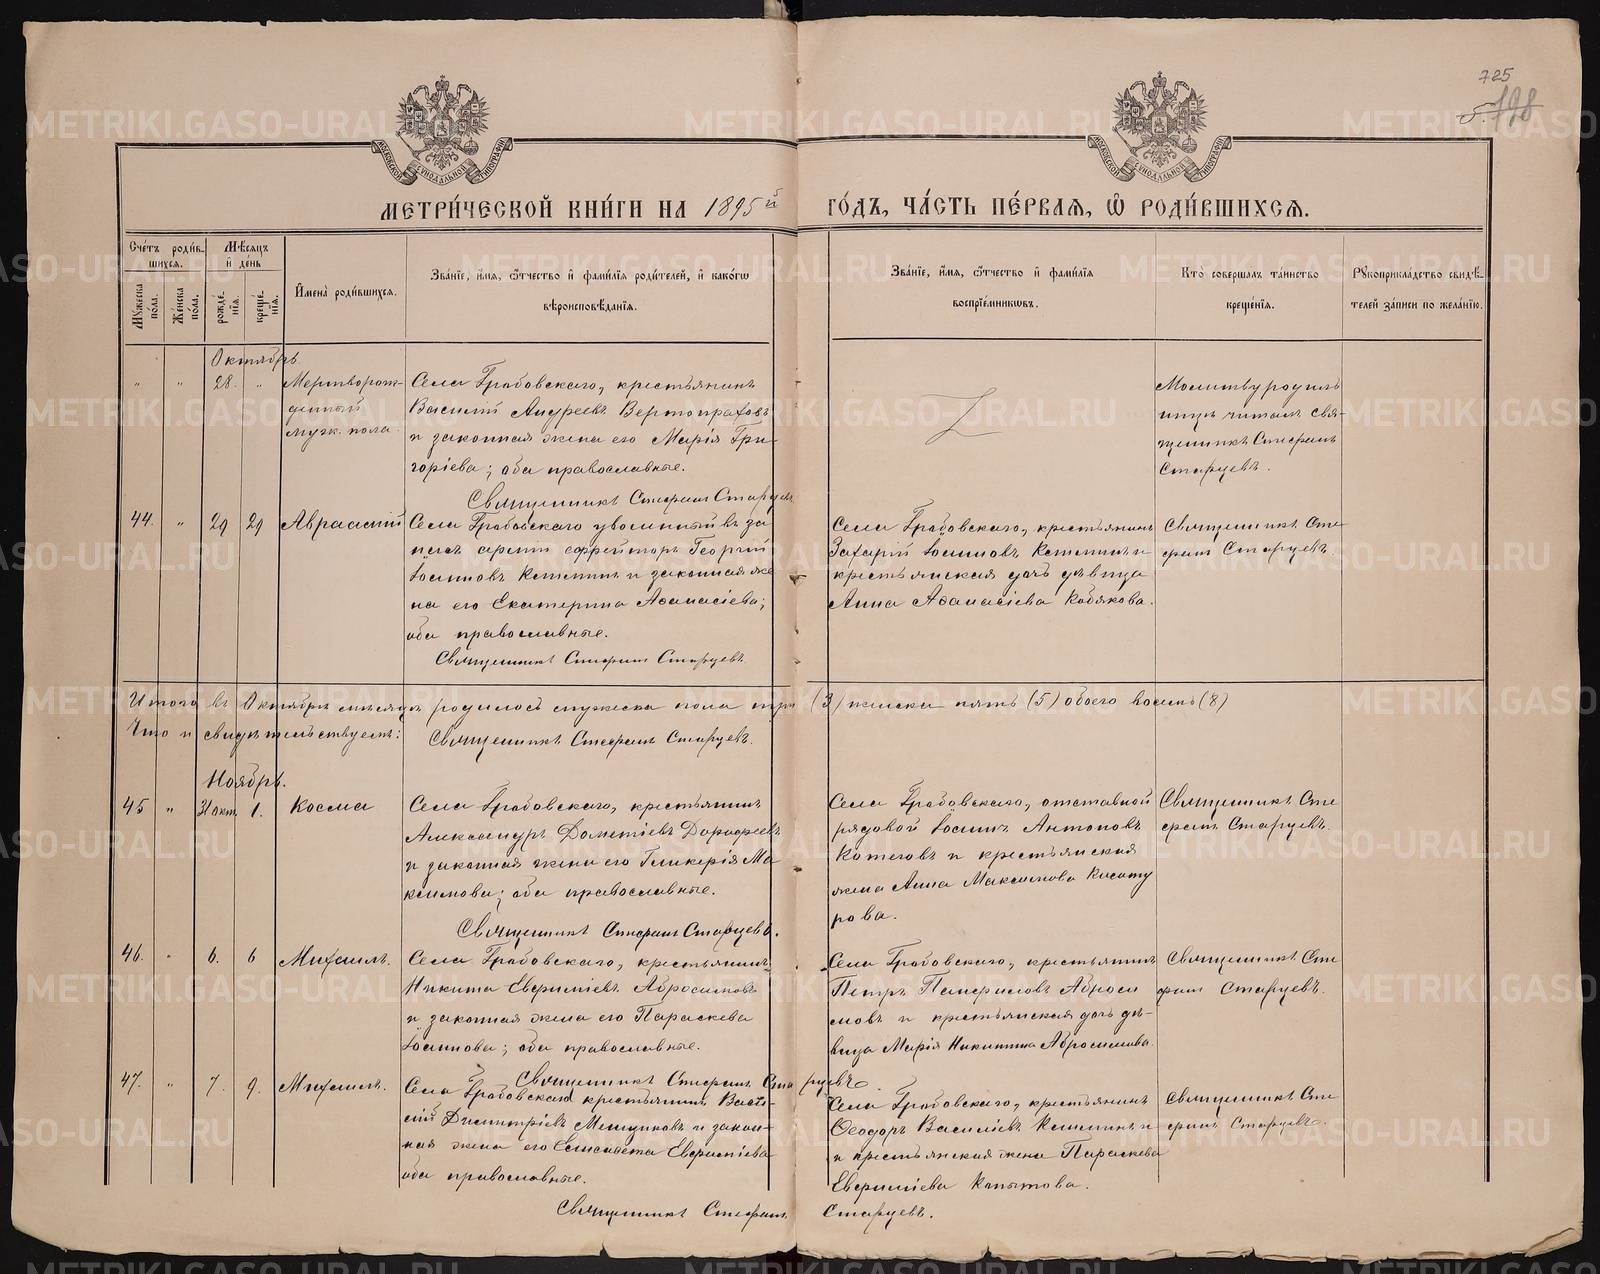 725
МЕТРИ́ЧЕСКОЙ КНИ́ГИ НА 1895й ГО́ДЪ, ЧА́СТЬ ПЕ́РВАЯ, Ѡ РОДИ́ВШИХСЯ.
Сче́тъ роди́вшихся.
Мѣ́сяцъ и де́нь
Му́жеска по́ла.
Же́нска по́ла.
рожде́нія.
креще́нія.
Имена̀ роди́вшихся.
Зва́ніе, и́мя, ѻ҆́тчество и фами́лія роди́телей, и како́гѡ
вѣроисповѣ́данія.
Зва́ніе, и́мя, ѻ҆́тчество и фами́лія
воспріе́мниковъ.
Кто̀ соверша́лъ та́инство
креще́нія.
Рукоприкла́дство свидѣ́-
телей за́писи по жела́нію.
Октябрь
" " 28. " Мертворож-
денный
муж. пола.
Села Грабовскаго, крестьянинъ
Василій Андреевъ Вертопраховъ
и законная жена его Марія Гри-
горіева; оба православные.
Священникъ Стефанъ Старцевъ
Молитву родиль
ницѣ читалъ свя-
щенникъ Стефанъ
Старцевъ.
44. " 29 29 Авраамій
Села Грабовскаго уволенный въ за
пасъ арміи ефрейторъ Георгій
Іоанновъ Кетминъ и законная же
на его Екатерина Аѳанасіева;
оба православные.
Священникъ Стефанъ Старцевъ
Села Грабовскаго, крестьянинъ
Захарій Іоанновъ Кетминъ и
крестьянская дочь дѣвица
Анна Аѳанасіева Кобякова.
Священникъ Сте
фанъ Старцевъ.
Итого въ Октябрѣ мѣсяцѣ родилось мужеска пола три (3) женска пять (5) обоего восемь (8)
Что и свидѣтельствуемъ: Священникъ Стефанъ Старцевъ.
Ноябрь.
45 " 31 окт. 1. Косма
Села Грабовскаго, крестьянинъ
Александръ Дометіевъ Дорофеевъ
и законная жена его Гликерія Ма
ксимова; оба православные.
Священникъ Стефанъ Старцевъ.
Села Грабовскаго, отставной
рядовой Іоаннъ Антоновъ
Котеговъ и крестьянская
жена Анна Максимова
рова.
Священникъ Сте
фанъ Старцевъ.
46. " 6. 6 Михаилъ.
Села Грабовскаго, крестьянинъ
Никита Абросимовъ
и законная жена его Параскева
Іоаннова; оба православные.
Священникъ Стефанъ Старцевъ.
Села Грабовскаго, крестьянинъ
Петръ Панфиловъ Аброси
мовъ и крестьянская дочь дѣ-
вица Марія Никитина Абросимова.
Священникъ Сте
фанъ Старцевъ.
47. " 7. 9. Михаилъ.
Села Грабовскаго крестьянинъ Васи-
лій Димитріевъ и закон-
ная жена его Елисавета
оба православные.
Священникъ Стефанъ Старцевъ.
Села Грабовскаго, крестьянинъ
Ѳеодоръ Василіевъ Кетминъ и
и крестьянская жена Параскева
Копытова.
Священникъ Сте
фанъ Старцевъ.
METRIKI.GASO-URAL.RU